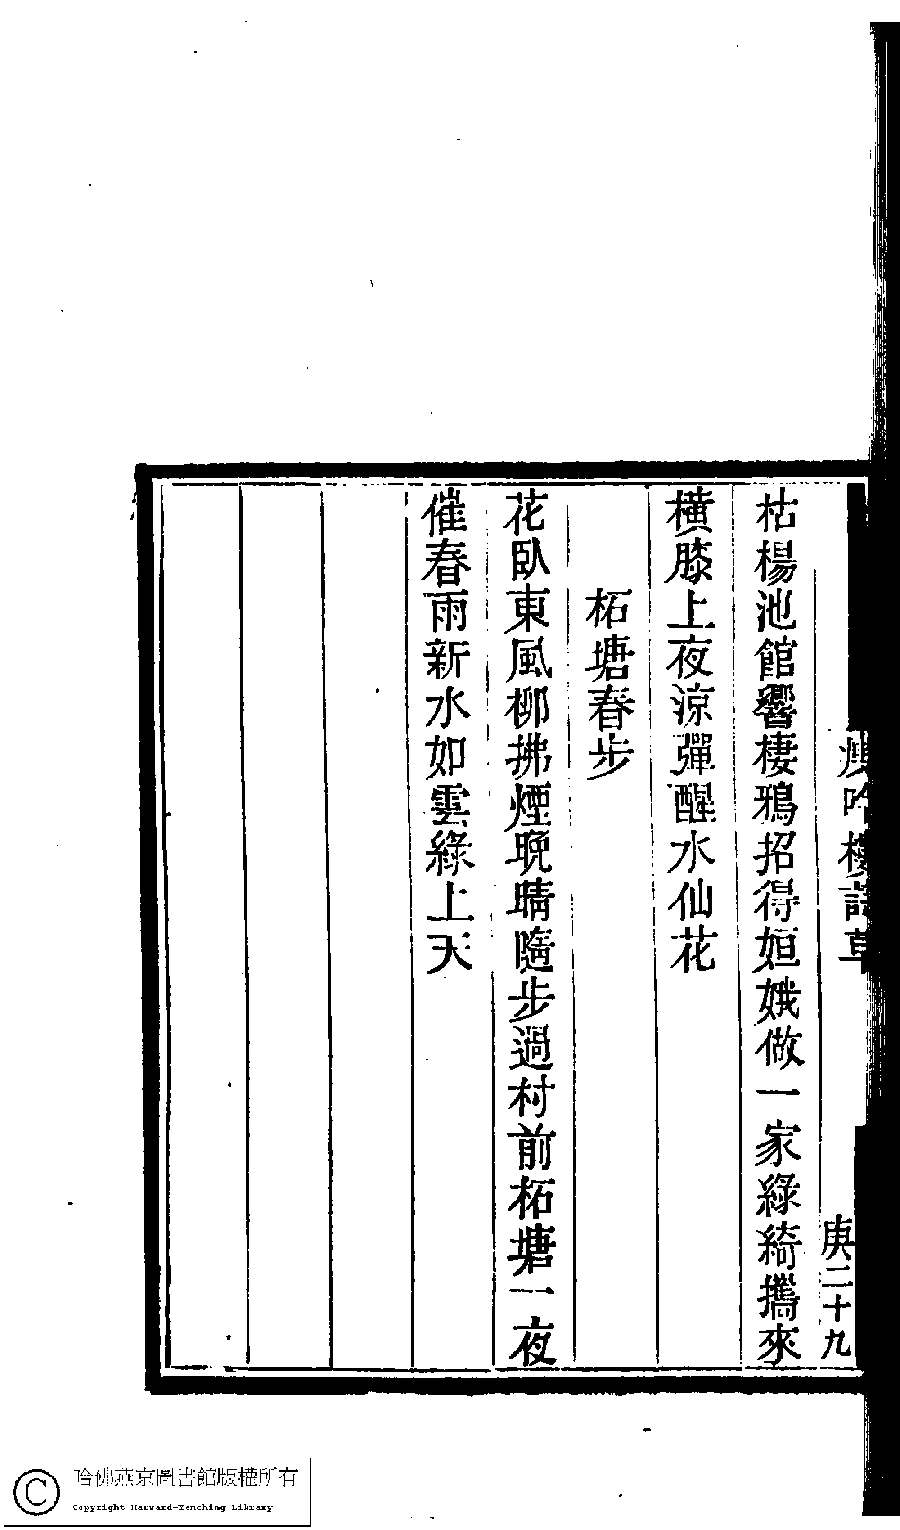 瘦吟樓詩草
庚二十九
枯楊池館響棲鴉招得姮娥做一家綠綺攜來
橫膝上夜涼彈醒水仙花
柘塘春步
花臥東風柳拂煙晚晴隨步過村前柘塘一夜
催春雨新水如雲綠上天
哈佛燕京圖書館版權所有
Copyright Harvard-Yenching Library